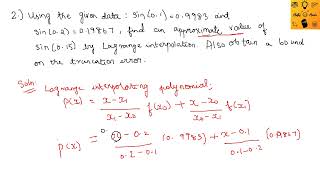 2.) Using the given data: sin(0.1) = 0.9983 and
sin(0.2) = 0.19867, find an approximate value of
sin(0.15) by Lagrange interpolation. Also obtain a bound
on the truncation error.
Soln: Lagrange interpolating polynomial;
P(x) = x-x₁/x₁-x₀ f(x₀) + x-x₀/x₀-x₁ f(x₁)
P(x) = 0. - 0.2/0.2-0.1 (0.9983) + x-0.1/0.1-0.2 (0.19867)